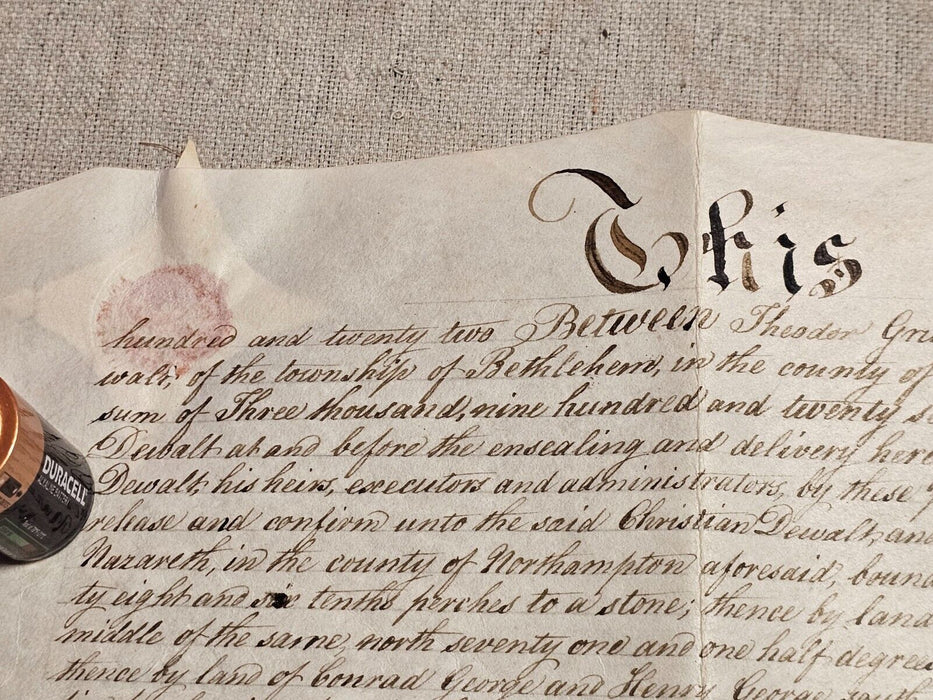 This
hundred and twenty two Between Theodor Gru
walt, of the township of Bethlehem, in the county of
sum of Three thousand, nine hundred and twenty s
Dewalt at and before the ensealing and delivery here
Dewalt, his heirs, executors and administrators, by these p
release and confirm unto the said Christian Dewalt, and
Nazareth, in the county of Northampton aforesaid, bound
ty eight and six tenths perches to a stone; thence by land
middle of the same, north seventy one and one half degrees
thence by land of Conrad George and Henry George
DURACELL
ALKALINE BATTERY